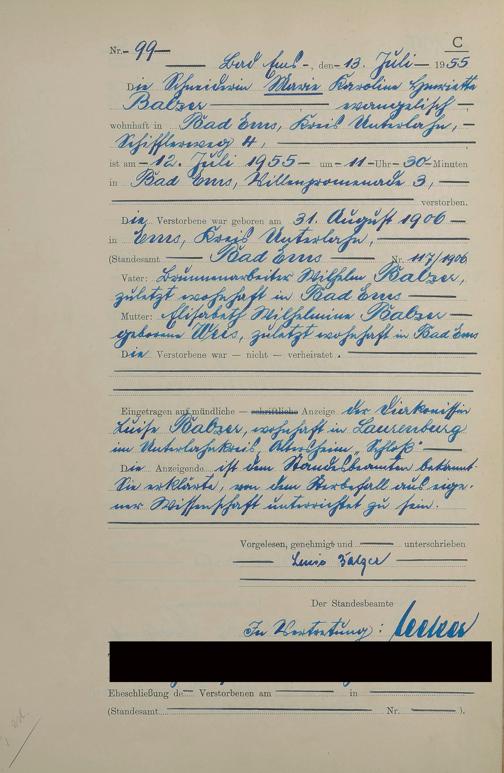 C
Nr. 99
Bad Ems, den 13. Juli 1955
Die Schneiderin Marie Karoline Henriette
Balzer evangelisch,
wohnhaft in Bad Ems, Kreis Unterlahn,
Schifflerweg 4,
ist am 12. Juli 1955 um 11 Uhr 30 Minuten
in Bad Ems, Villenpromenade 3,
verstorben.
Die Verstorbene war geboren am 31. August 1906
in Ems, Kreis Unterlahn,
(Standesamt Bad Ems Nr. 117/1906
Vater: Brunnenarbeiter Wilhelm Balzer,
zuletzt wohnhaft in Bad Ems
Mutter: Elisabeth Wilhelmine Balzer
geborene Weis, zuletzt wohnhaft in Bad Ems
Die Verstorbene war — nicht — verheiratet.
Eingetragen auf mündliche — schriftliche Anzeige der Diakonissin
Luise Balzer, wohnhaft in Laurenburg
im Unterlahnkreis, Altersheim „Schloß"
Die Anzeigende ist dem Standesbeamten bekannt.
Sie erklärte, von dem Sterbefall aus eige-
ner Wissenschaft unterrichtet zu sein.
Vorgelesen, genehmigt und unterschrieben
Luise Balzer
Der Standesbeamte
In Vertretung:
Eheschließung de Verstorbenen am in
(Standesamt Nr. ).